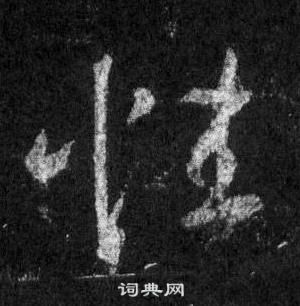 性
词典网